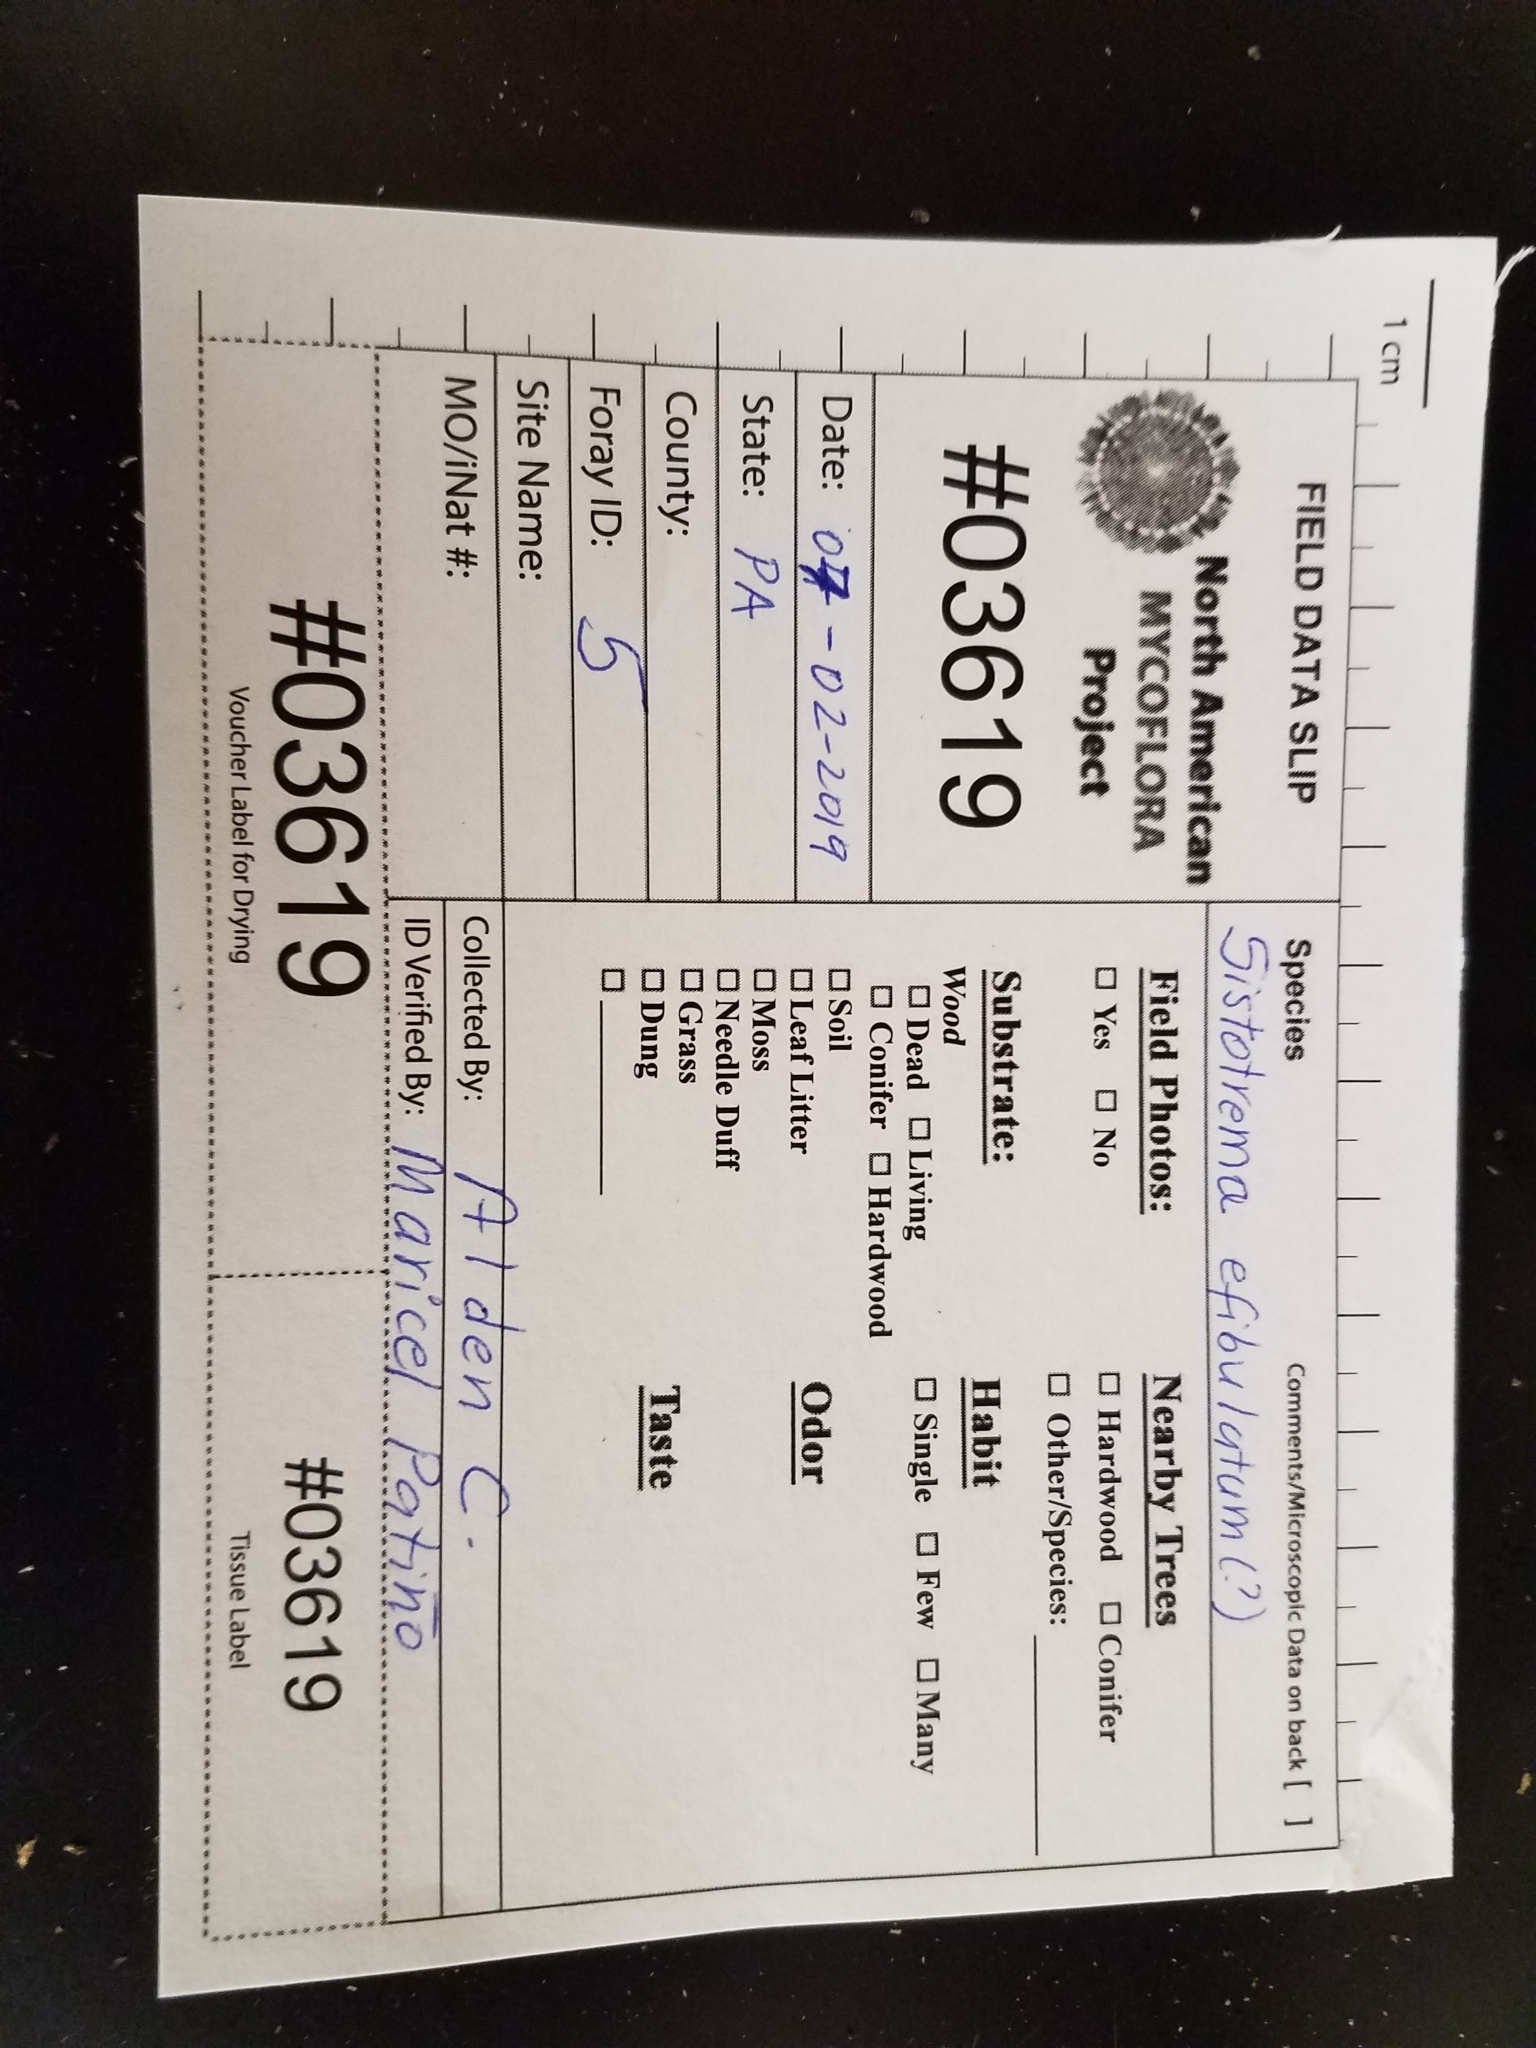 1 cm
FIELD DATA SLIP
North American
MYCOFLORA
Project
#03619
Date: 07-02-2019
State: PA
County:
Foray ID: 5
Site Name:
MO/iNat #:
Species
Comments/Microscopic Data on back [ ]
Sistotrema efibulatum (?)
Field Photos:
☐ Yes ☐ No
Substrate:
Wood
☐ Dead ☐ Living
☐ Conifer ☐ Hardwood
☐ Soil
☐ Leaf Litter
☐ Moss
☐ Needle Duff
☐ Grass
☐ Dung
☐
Nearby Trees
☐ Hardwood ☐ Conifer
☐ Other/Species:
Habit
☐ Single ☐ Few ☐ Many
Odor
Taste
Collected By: Alden C.
ID Verified By: Maricel Patiño
#03619
Voucher Label for Drying
#03619
Tissue Label